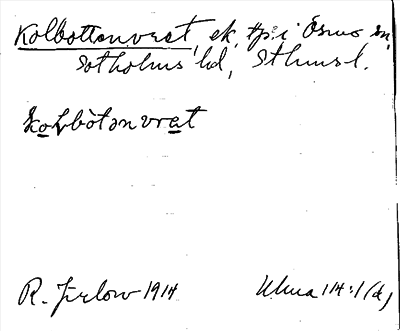 Kolbottonvret, ek, tp. i Ösmo sn,
Sotholms hd, Sthms l.
Kolbòtənvret
R. Jirlow 1914 Ulma 114:1 (d)